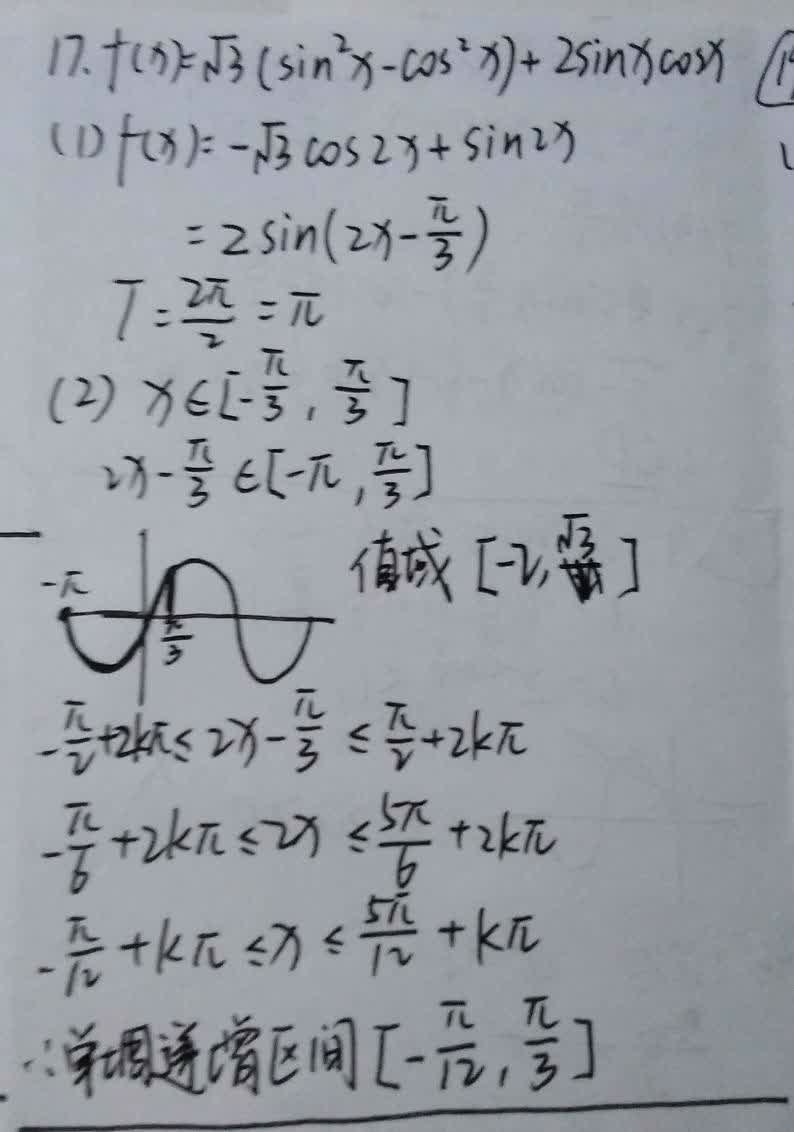 17. f(x)=√3(sin²x-cos²x)+2sinxcosx
(1) f(x)=-√3cos2x+sin2x
=2sin(2x-π/3)
T=2π/2=π
(2) x∈[-π/3, π/3]
2x-π/3∈[-π, π/3]
值域[-2, √3]
-π
π/3
-π/2+2kπ≤2x-π/3≤π/2+2kπ
-π/6+2kπ≤2x≤5π/6+2kπ
-π/12+kπ≤x≤5π/12+kπ
∴单调递增区间[-π/12, π/3]